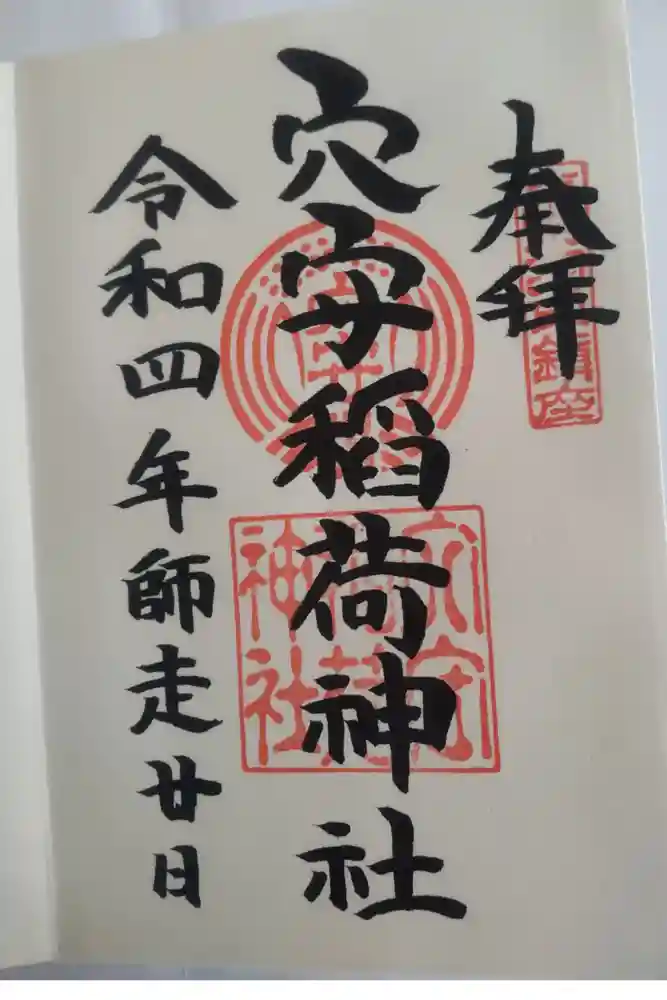 奉拝
鎮座
穴守稲荷神社
令和四年師走廿日
穴守
神社